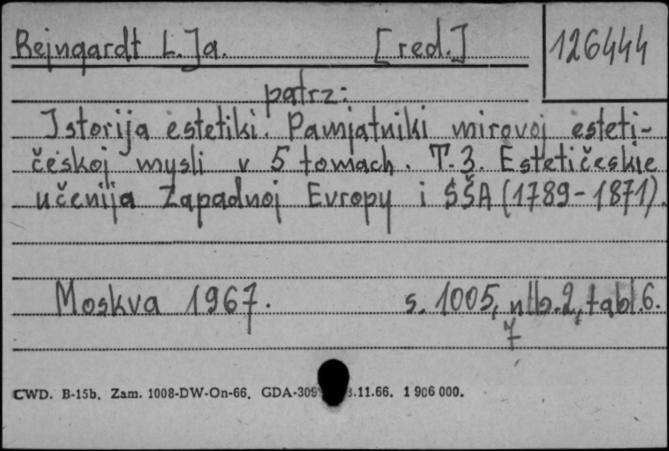 Rejngardt L. Ja. [red.] 126444
patrz:
Istorija estetiki. Pamjatniki mirovoj esteti-
českoj mysli v 5 tomach. T.3. Estetičeskie
učenija Zapadnoj Evropy i SŠA (1789-1871).
Moskva 1967. s. 1005, nlb.2, tabl.6.
7
CWD. B-15b. Zam. 1008-DW-On-66. .11.66. 1 906 000.